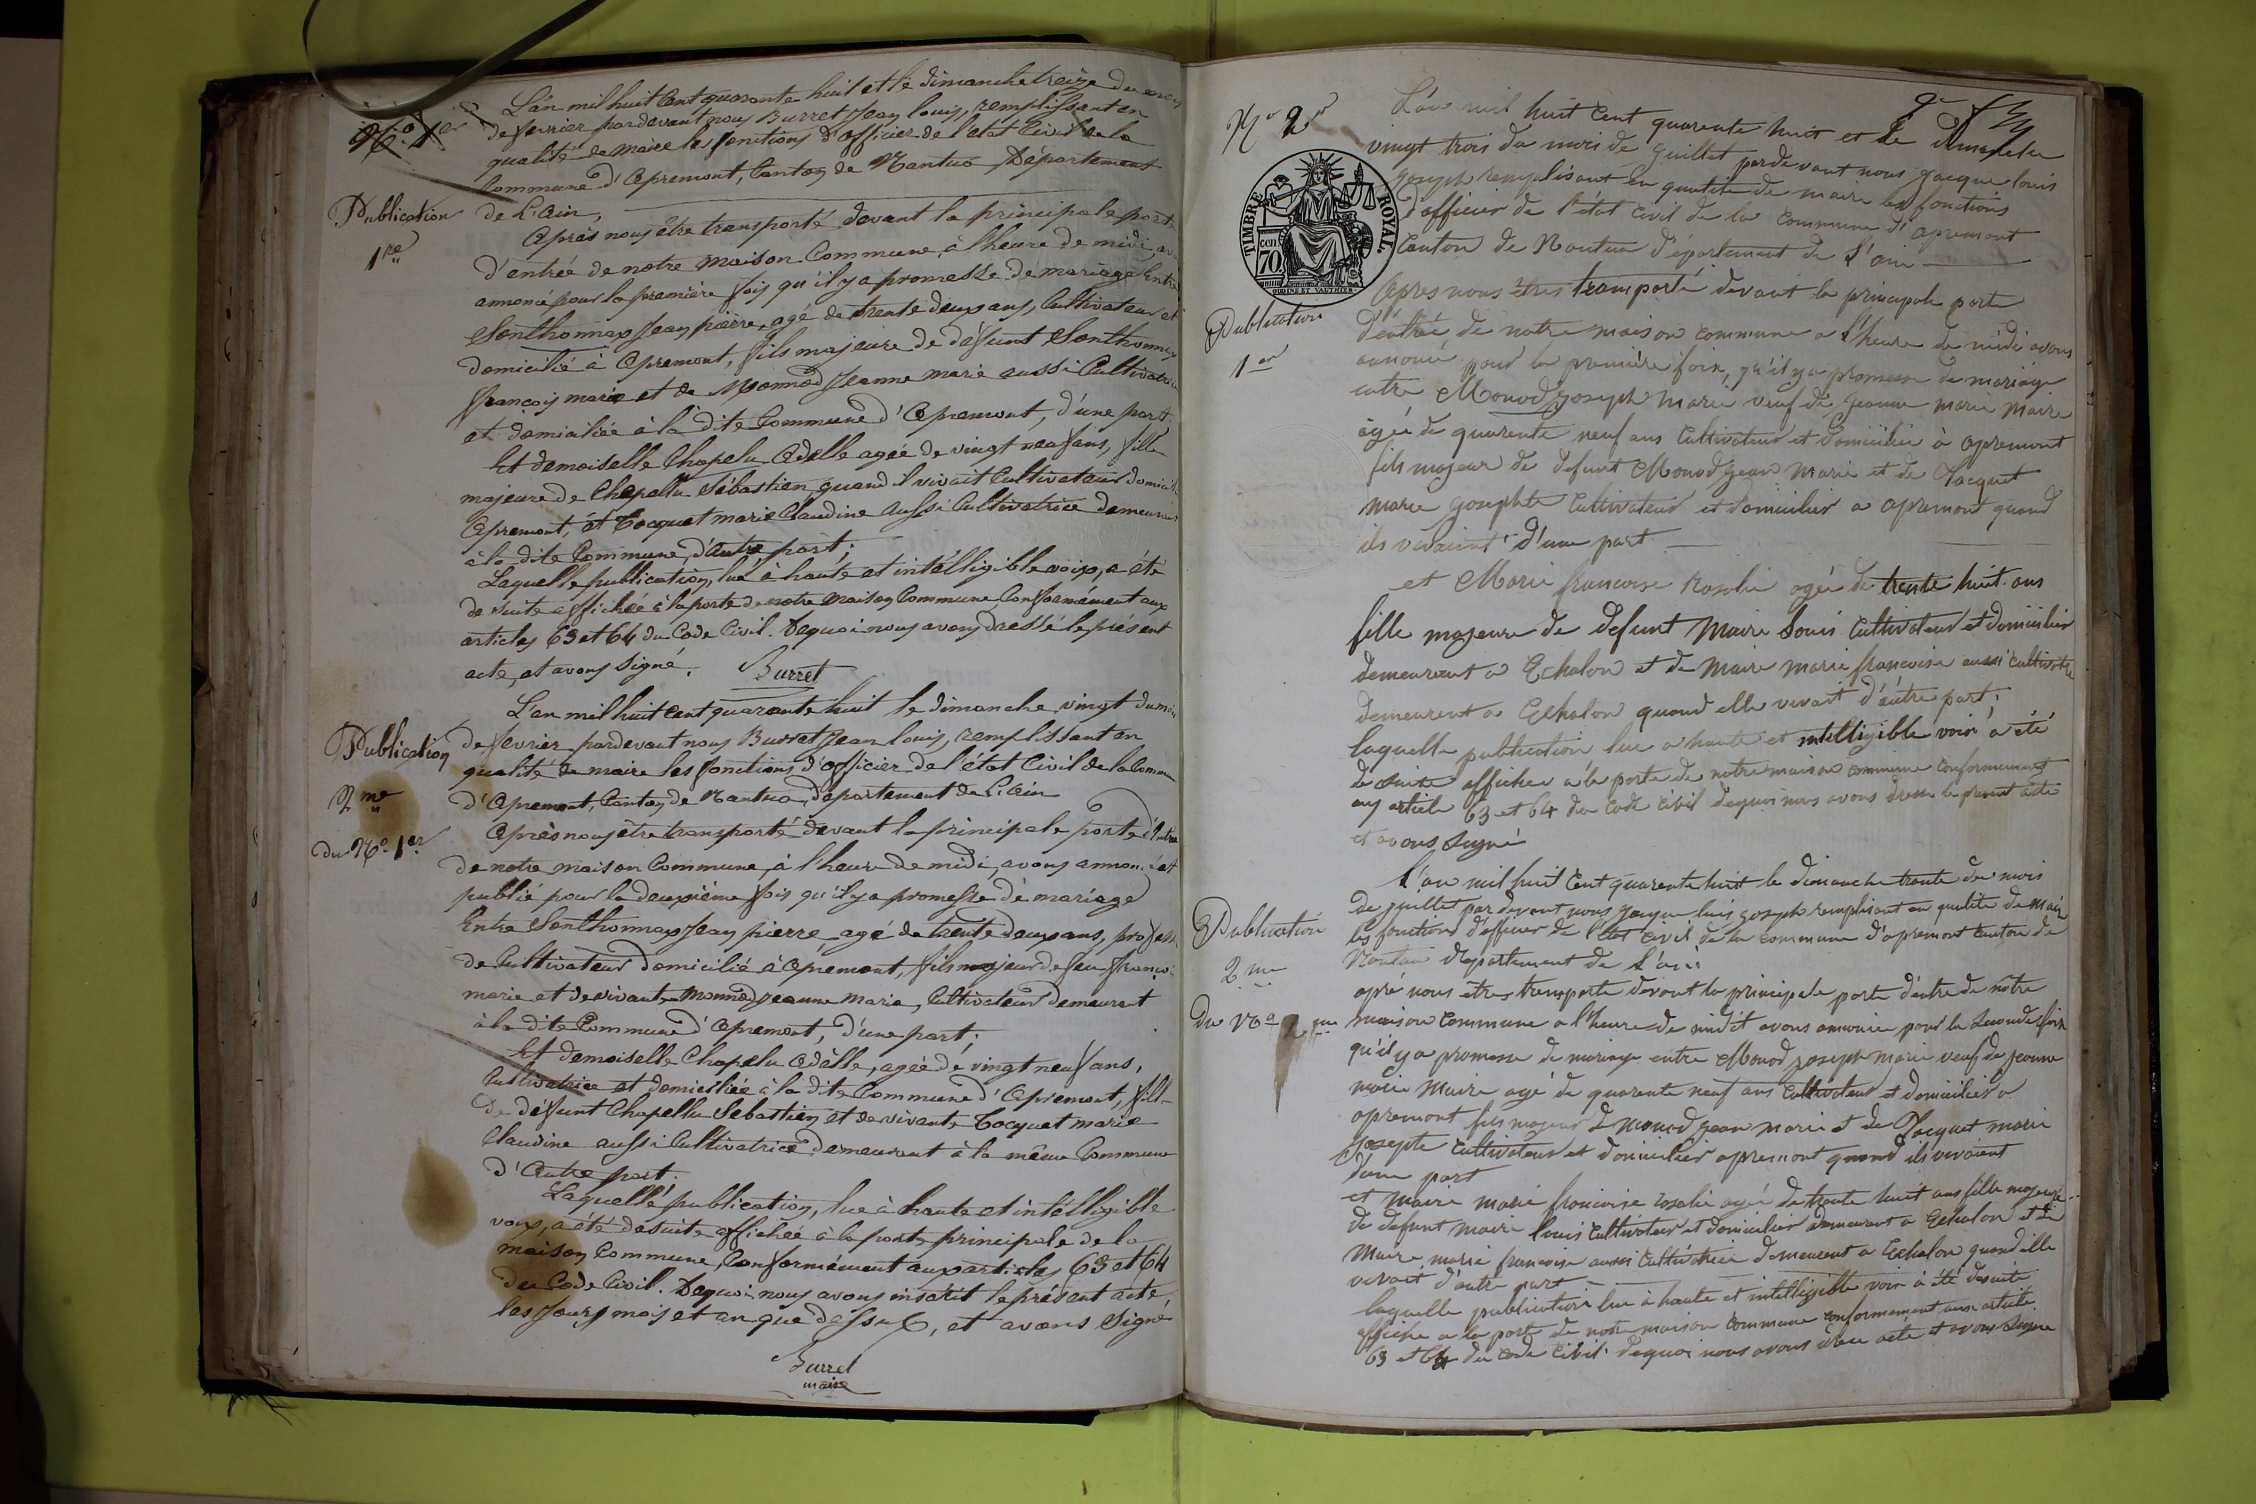 L'an mil huit Cent quarante huit et le dimanche treize du mois
N.o 1er
de fevrier pardevant nous Burret Jean louis, remplissant en
qualité de maire les fonctions d'officier de l'état Civil de la
Commune d'Apremont, Canton de Nantua Département
Publication
1re
de L'Ain,
Après nous être transporté devant la principale porte
d'entrée de notre maison Commune, à l'heure de midi, avons
annoncé pour la première fois qu'il y a promesse de mariage Entre
Sonthonnax Jean pierre, agé de trente deux ans, Cultivateur et
domicilié à Apremont, fils majeure de défunt Sonthonnax
françois marie et de Monnod Jeanne marie aussi Cultivatrice
et domiciliée à la dite Commune d'Apremont, d'une part.
Et demoiselle Chapelu Adelle agée de vingt neuf ans, fille
majeure de Chapellu Sébastien, quand il vivait Cultivateur domicilié
Apremont, et Tocquet marie Claudine Aussi Cultivatrice demeurant
à la dite Commune, d'Autre part;
Laquelle publication, lue à haute et intélligible voix, a été
de suite affichée à la porte de notre Maison Commune, Conformément aux
articles 63 et 64 du Code Civil. Dequoi nous avons dressé le présent
acte, et avons Signé. Burret
L'an mil huit Cent quarante huit le dimanche vingt du mois
Publication
2me
du N.o 1er
de fevrier pardevant nous Burret Jean louis, remplissant en
qualité de maire les fonctions d'officier de l'état Civil de la Commune
d'Apremont, Canton de Nantua, département de L'Ain
Après nous être transporté devant la principale porte d'Entrée
de notre maison Commune, à l'heure de midi, avons annoncé et
publié pour la deuxième fois qu'il y a promesse de mariage
Entre Sonthonnax Jean pierre agé de trente deux ans, profession
de Cultivateur domicilié à Apremont, fils majeur de feu françois
marie et de vivante Monnod Jeanne Marie, Cultivateur demeurant
à la dite Commune d'Apremont, d'une part;
Et demoiselle Chapelu Adèlle, agée de vingt neuf ans,
Cultivatrice et domiciliée à la dite Commune d'Apremont, fille
de défunt Chapellu Sébastien et de vivante Tocquet marie
Claudine aussi Cultivatrice demeurant à la même Commune
d'Autre part.
Laquelle publication, lue à haute et intélligible
voix, a été de suite affichée à la porte principale de la
maison Commune, Conformément aux articles 63 et 64
du Code Civil. Dequoi nous avons inscrit le présent acte,
les Jours mois et an que dessus, et avons Signé
Burret
maire
N.o 2
TIMBRE ROYAL
cen
70
L'an mil huit Cent quarente huit et le dimanche
vingt trois du mois de Juillet pardevant nous Jacque louis
Joseph remplisant en qualité de maire les fonctions
d'officier de l'état civil de la commune d'apremont
Canton de Nantua D'épartement de l'ain
Publication
1er
Apres nous êtres transporté devant la principale porte
d'entrée de notre maison commune a l'heure de midi avons
annoncé pour la première foix, qu'il y a promesse de mariage
entre Monod Joseph Marie veuf de Jeanne marie Maire
agée de quarente neuf ans Cultivateur et Domicilié à apremont
fils majeur de defunt Monod Jean Marie et de Jacquet
Marie Josephte Cultivateur et Domicilier a apremont quand
ils vivaient d'une part
et Marie francoise Rosalie agée de trente huit ans
fille majeure de defunt Maire Louis Cultivateur et domicilier
demeurant a Echalon et de Maire Marie francoise aussi Cultivatr
demeurent a Echalon quand elle vivait d'autre part;
laquelle publication lue a haute et intelligible voix a été
de suite afficher a la porte de notre maison commune conformement
au article 63 et 64 du Code Civil dequoi nous avons dresse le present acte
et avons Signé
Publication
2me
du N.o 2me
L'an mil huit Cent quarente huit le dimanche trente du mois
de juillet par devant nous Jacque louis Joseph remplisant en qualité de Maire
les fonctions d'officier de l'état civil de la commune d'apremont canton de
Nantua departement de l'ain
apré nous êtres transporte devant la principale porte d'entre de notre
maison commune a l'heure de midit avons annoncer pour la seconde foix
qu'il y a promesse de mariage entre Monod Joseph Marie veuf de jeanne
marie Maire agé de quarente neuf ans Cultivateur et domicilier a
apremont fils majeur de Monod Jean Marie et de Jacquet Marie
Josepte Cultivateur et domicilier apremont quand ils vivoient
d'une part
et Maire Marie francoise rosalie agé de trente huit ans fille majeure
de defunt Maire louis Cultivateur et domicilier demeurant a Echalon et de
Maire marie francoise aussi Cultivatrice demeurent a Echalon quand elle
vivait d'autre part
laquelle publication lue à haute et intelligible voix à été desuite
affiche a la porte de notre maison commune conformement aux article
63 et 64 du code civil dequoi nous avons drece acte et avons signe